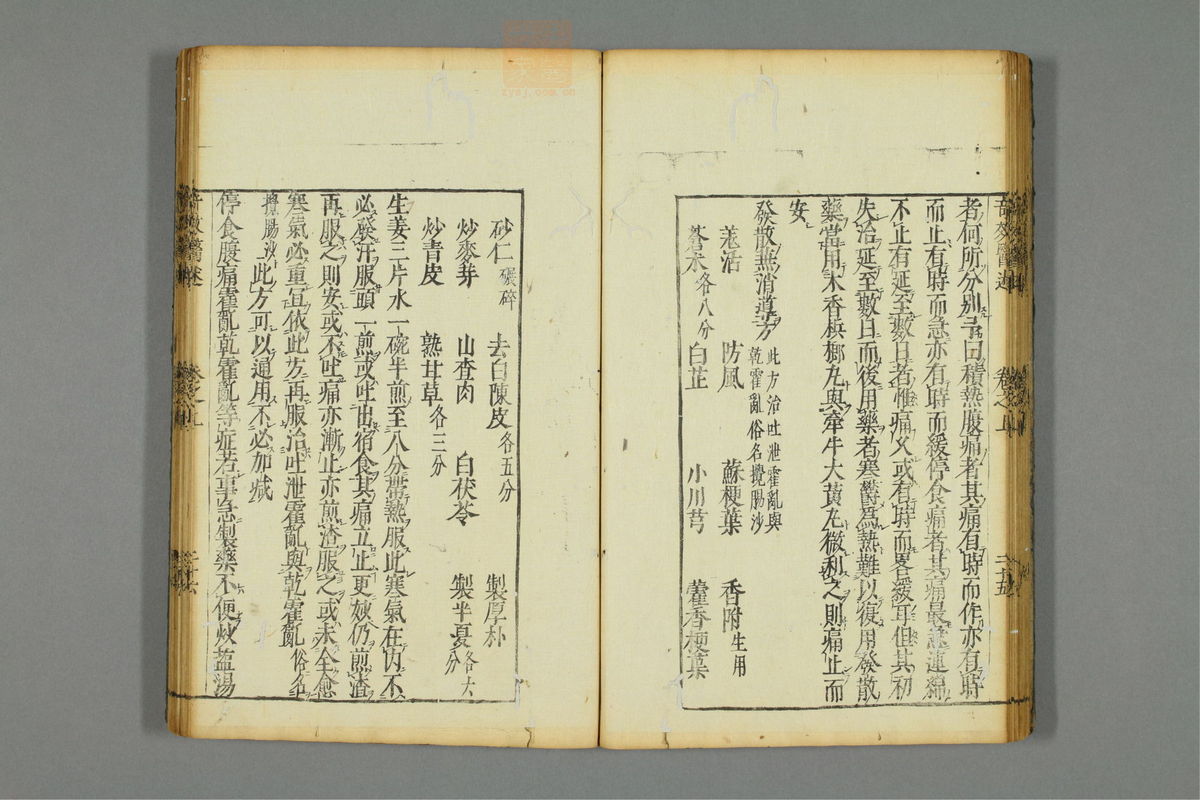 奇效醫述 卷之上 二十五
者何所分别予曰積熱腹痛者其痛有時而作亦有時
而止有時而急亦有時而緩停食痛者其痛最急連綿
不止有延至數日者惟痛久或有時而畧緩耳但其初
失治延至數日而後用藥者寒鬱爲熱難以復用發散
藥當用木香梹榔丸與牽牛大黃丸微利之則痛止而
安
發散兼消導方 此方治吐泄霍亂與乾霍亂俗名攪腸沙
羌活 防風 蘇梗葉 香附生用
蒼朮各八分 白芷 小川芎 藿香梗葉
砂仁碾碎 去白陳皮各五分 製厚朴
炒麥芽 山查肉 白茯苓 製半夏各六分
炒青皮 熟甘草各三分
生姜三片水一碗半煎至八分帶熱服此寒氣在内不
必發汗服頭一煎或吐出宿食其痛立止更妙仍煎渣
再服之則安或不吐痛亦漸止亦煎渣服之或未全愈
寒氣必重宜依此方再服治吐泄霍亂與乾霍亂俗名
攪腸沙此方可以通用不必加減
停食腹痛霍亂乾霍亂等症若事急製藥不便炒盐湯
zysj.com.cn